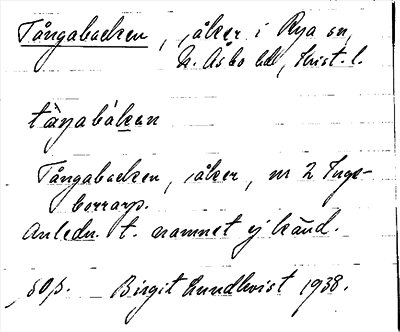 Tångabacken, åker i Rya sn,
N. Åsbo hd, Krist. l.
tàŋabáken
Tångabacken, åker, nr 2 Inge-
borrarp.
Anledn. t. namnet ej känd.
80 s. Birgit Lundkvist 1938.